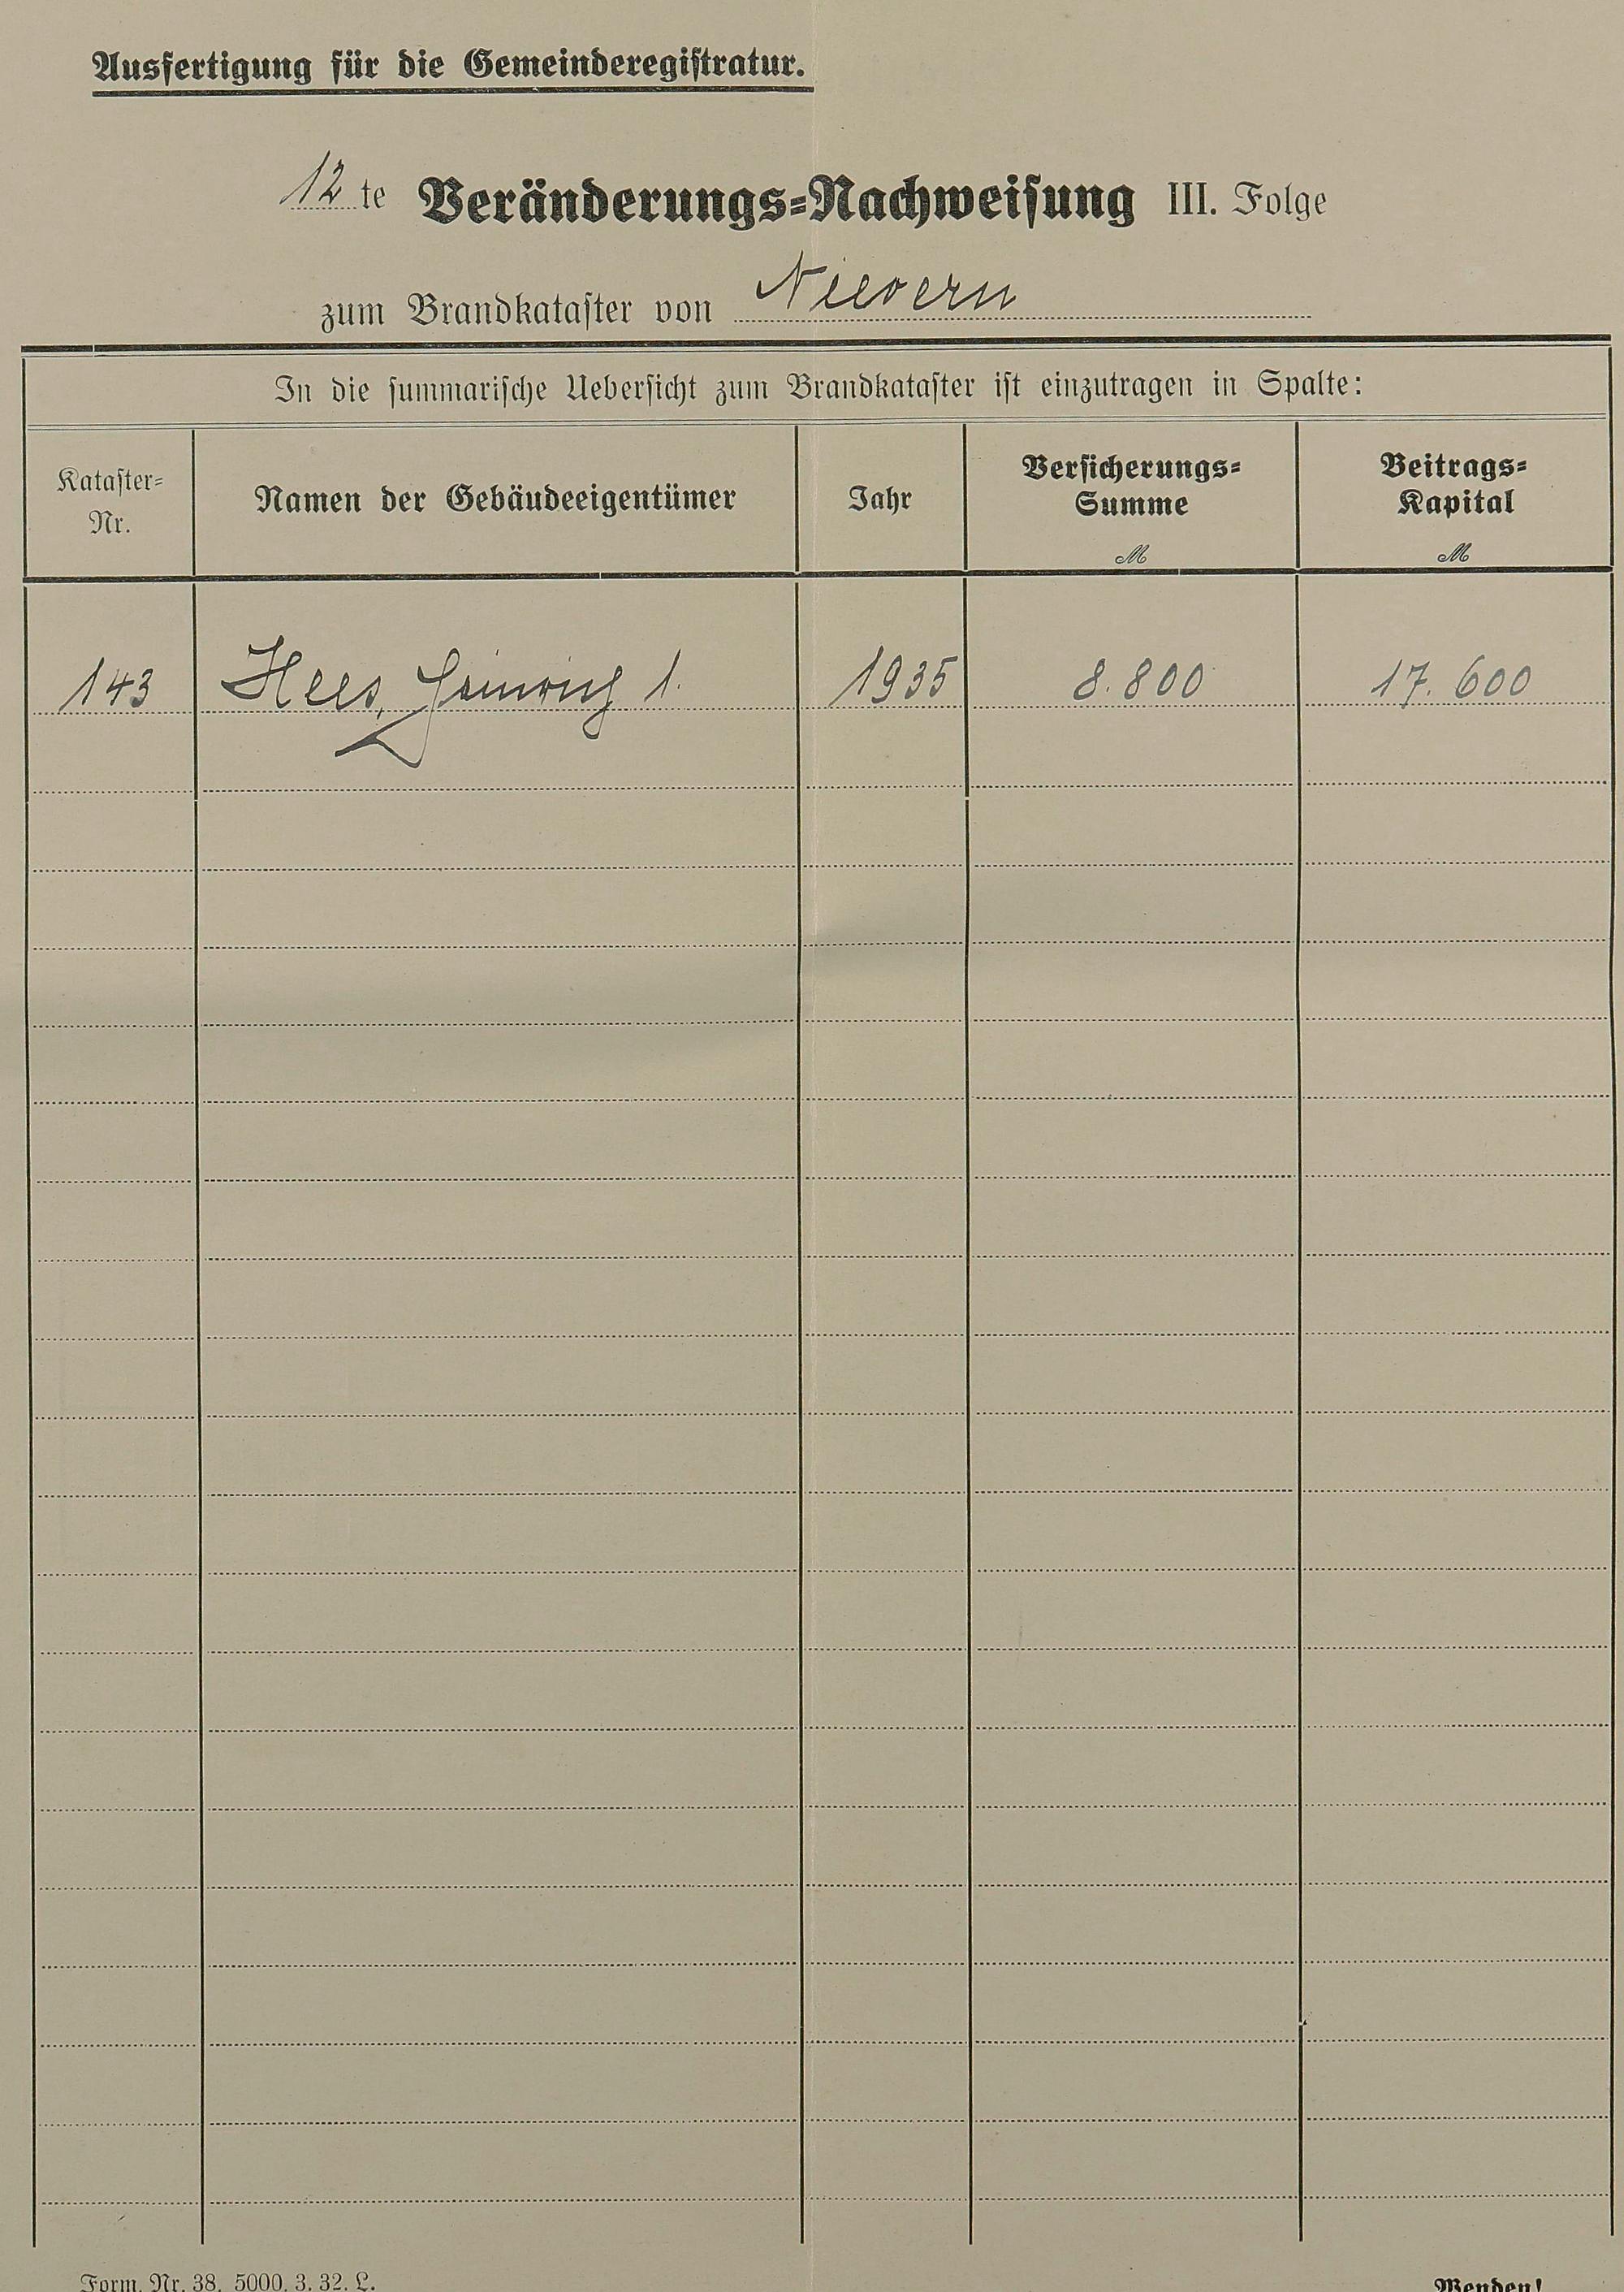 Ausfertigung für die Gemeinderegistratur.
12te Veränderungs-Nachweisung III. Folge
zum Brandkataster von Nievern
In die summarische Uebersicht zum Brandkataster ist einzutragen in Spalte:
Kataster-
Nr.
Namen der Gebäudeeigentümer
Jahr
Versicherungs-
Summe
M
Beitrags-
Kapital
M
143 Hees, Heinrich 1. 1935 8.800 17.600
Form. Nr. 38. 5000. 3. 32. L.
Wenden!